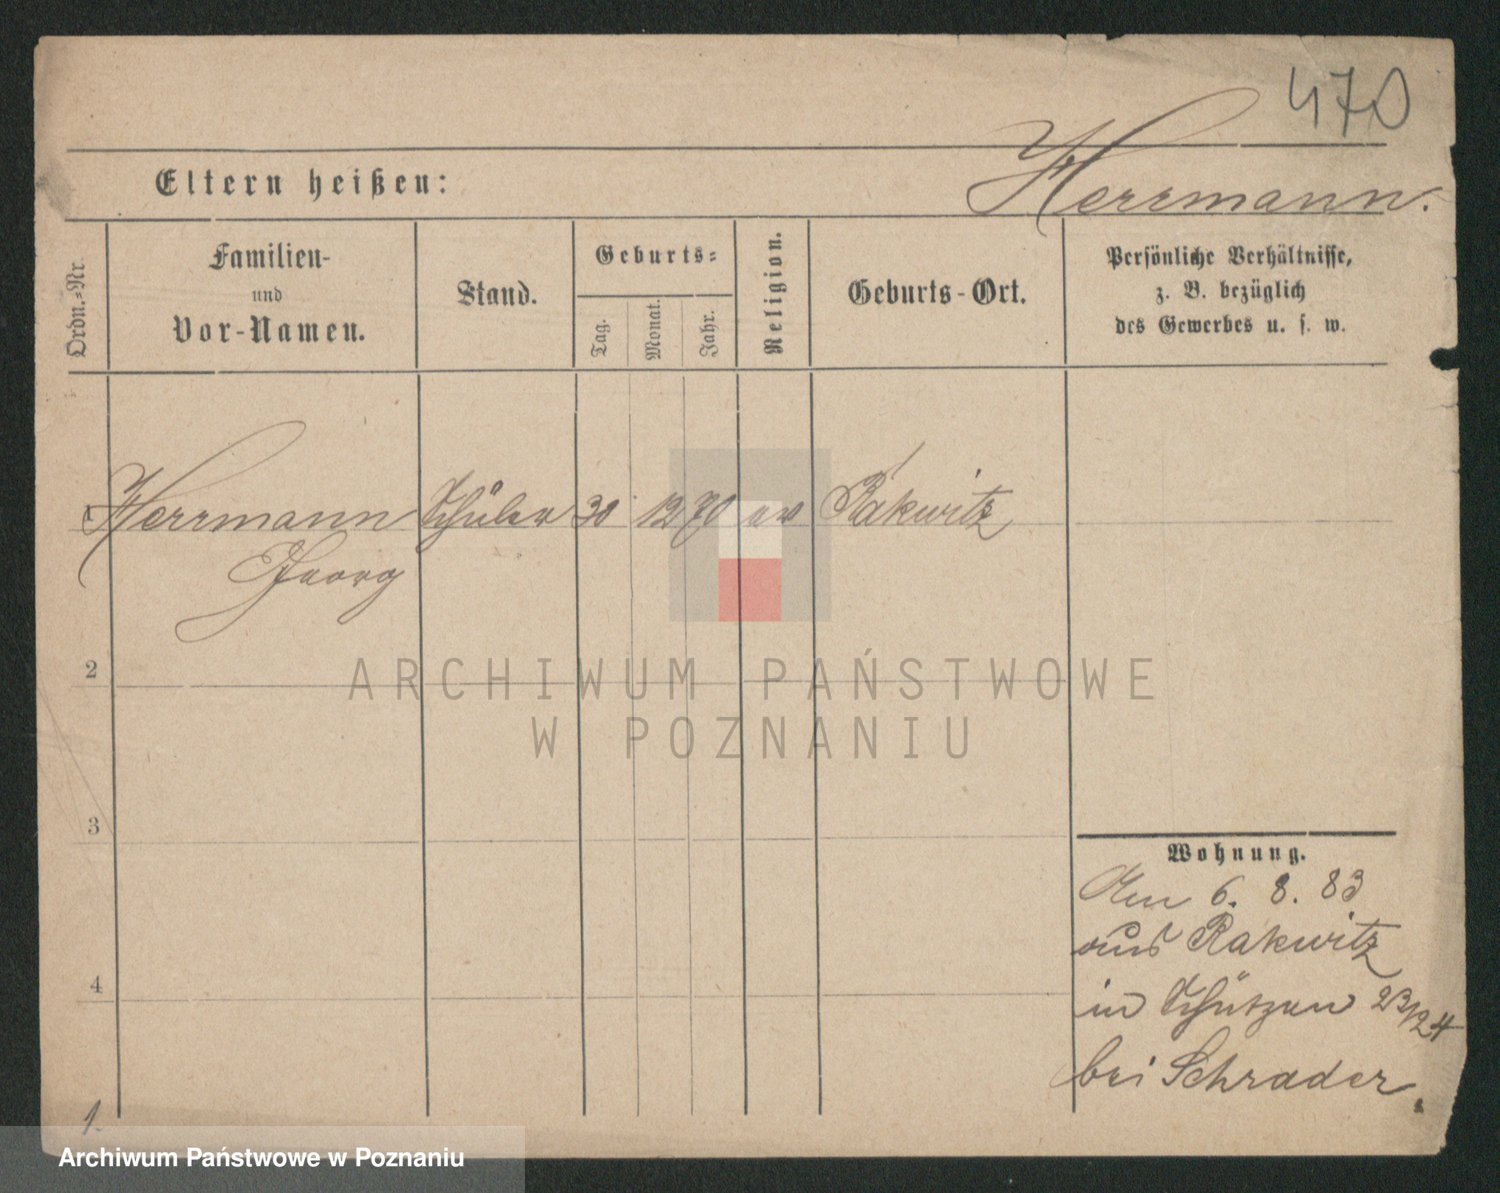 470
Herrmann.
Eltern heißen:
Ordn.=Nr.
Familien-
und
Vor-Namen.
Stand.
Geburts=
Tag.
Monat.
Jahr.
Religion.
Geburts-Ort.
Persönliche Verhältnisse,
z. B. bezüglich
des Gewerbes u. s. w.
1 Herrmann Schüler 30 12 70 ev Rakwitz
Georg
2
ARCHIWUM PAŃSTWOWE
W POZNANIU
3
Wohnung.
Am 6. 8. 83
aus Rakwitz
in Schützen 23/24
bei Schrader.
4
1.
Archiwum Państwowe w Poznaniu